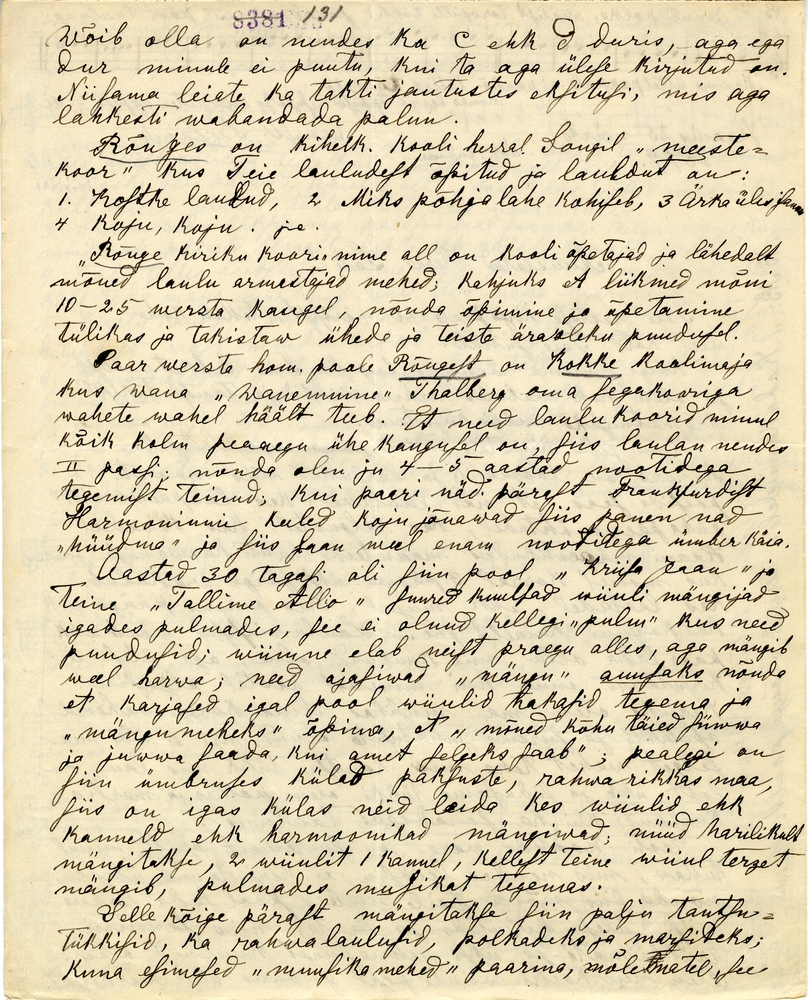 9381 131
Wõib olla on nendes ka C ehk D duris, aga ega
dur minule ei puutu, kui ta aga ülesse kirjutud on.
Niisama leiate ka takti jautustes eksitusi, mis aga
lahkesti wabandada palun.
Rõuges on kihelk. kooli herral Songil „meeste=
koor" kus Teie lauludest õpitud ja lauldut on:
1. Kostke laulud, 2 Miks põhjalahe kohiseb, 3 Ärka üles
4 Koju, koju. je.
„Rõuge kiriku koori" nime all on kooli õpetajad ja lähedalt
mõned laulu armastajad mehed; kahjuks et liikmed mõni
10–25 wersta kaugel, nõnda õpimine ja õpetamine
tülikas ja takistaw ühede ja teiste äraoleku puudusel.
Paar wersta hom. poole Rõugest on Kokke koolimaja
kus wana „wanemuine" Thalberg oma segakooriga
wahete wahel häält teeb. Et need laulu koorid minul
kõik kolm peaaegu ühe kaugusel on, siis laulan nendes
II passi; nõnda olen ju 4–5 aastad nootidega
tegemist teinud; kui paari näd. pärast Frankfurdist
Harmoniumi keeled koju jõuawad siis panen nad
„hüüdma" ja siis saan weel enam nootitega ümber käia.
Aastad 30 tagasi oli siin pool „Kriisa Jaan" ja
teine „Tallime Allo" suured kuulsad wiiuli mängijad
igades pulmades, see ei olnud kellegi „pulm" kus need
puudusid; wiimne elab neist praegu alles, aga mängib
weel harwa; need ajasiwad „mängu" auusaks nõnda
et karjased igal pool wiiulid hakasid tegema ja
„mängumeheks" õpima, et „mõned kõhu täied süwwa
ja juwwa saada, kui amet selgeks saab"; pealegi on
siin ümbruses külad paksuste, rahwarikkas maa,
siis on igas külas neid leida kes wiiulid ehk
kanneld ehk harmoonikad mängiwad; nüüd harilikult
mängitakse, 2 wiiulit 1 kannel, kellest teine wiiul terzet
mängib, pulmades musikat tegemas.
Selle kõige pärast mängitakse siin palju tantsu=
tükkisid, ka rahwalaulusid, polkadeks ja marsiteks;
kuna esimesed „muusika mehed" paarina, mõlematel, see